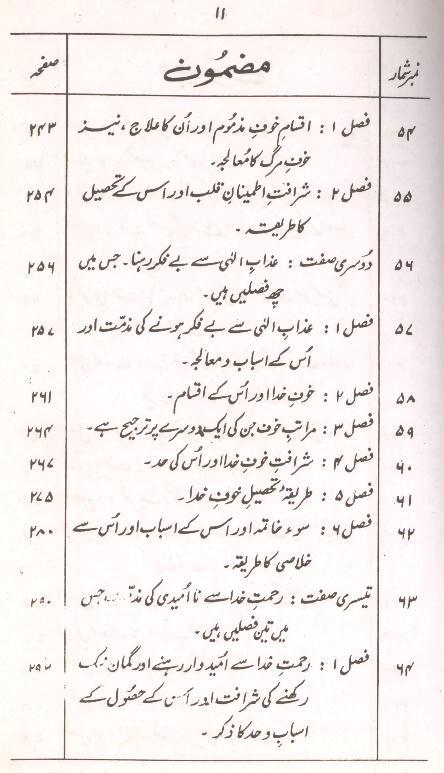 ۱۱
نمبر شمار مضمون صفحہ
۵۴ فصل ۱ : اقسامِ خوفِ مذموم اور اُن کا علاج ، نیز ۲۴۳
خوفِ مرگ کا معالجہ۔
۵۵ فصل ۲ : شرافتِ اطمینانِ قلب اور اس کے تحصیل ۲۵۴
کا طریقہ۔
۵۶ دُوسری صفت : عذابِ الٰہی سے بے فکر رہنا۔ جس میں ۲۵۶
چھ فصلیں ہیں۔
۵۷ فصل ۱ : عذابِ الٰہی سے بے فکر ہونے کی مذمّت اور ۲۵۷
اُس کے اسباب و معالجہ۔
۵۸ فصل ۲ : خوفِ خدا اور اُس کے اقسام۔ ۲۶۱
۵۹ فصل ۳ : مراتبِ خوف جن کی ایک دوسرے پر ترجیح ہے۔ ۲۶۴
۶۰ فصل ۴ : شرافتِ خوفِ خدا اور اُس کی حد۔ ۲۶۷
۶۱ فصل ۵ : طریقۂ تحصیلِ خوفِ خدا۔ ۲۷۵
۶۲ فصل ۶ : سوء خاتمہ اور اس کے اسباب اور اُس سے ۲۸۰
خلاصی کا طریقہ۔
۶۳ تیسری صفت : رحمتِ خدا سے نا اُمیدی کی جس ۲۹۰
میں تین فصلیں ہیں۔
۶۴ فصل ۱ : رحمتِ خدا سے اُمیدوار رہنے اور گمان نیک
رکھنے کی شرافت اور اُس کے حصُول کے
اسباب و حد کا ذکر۔